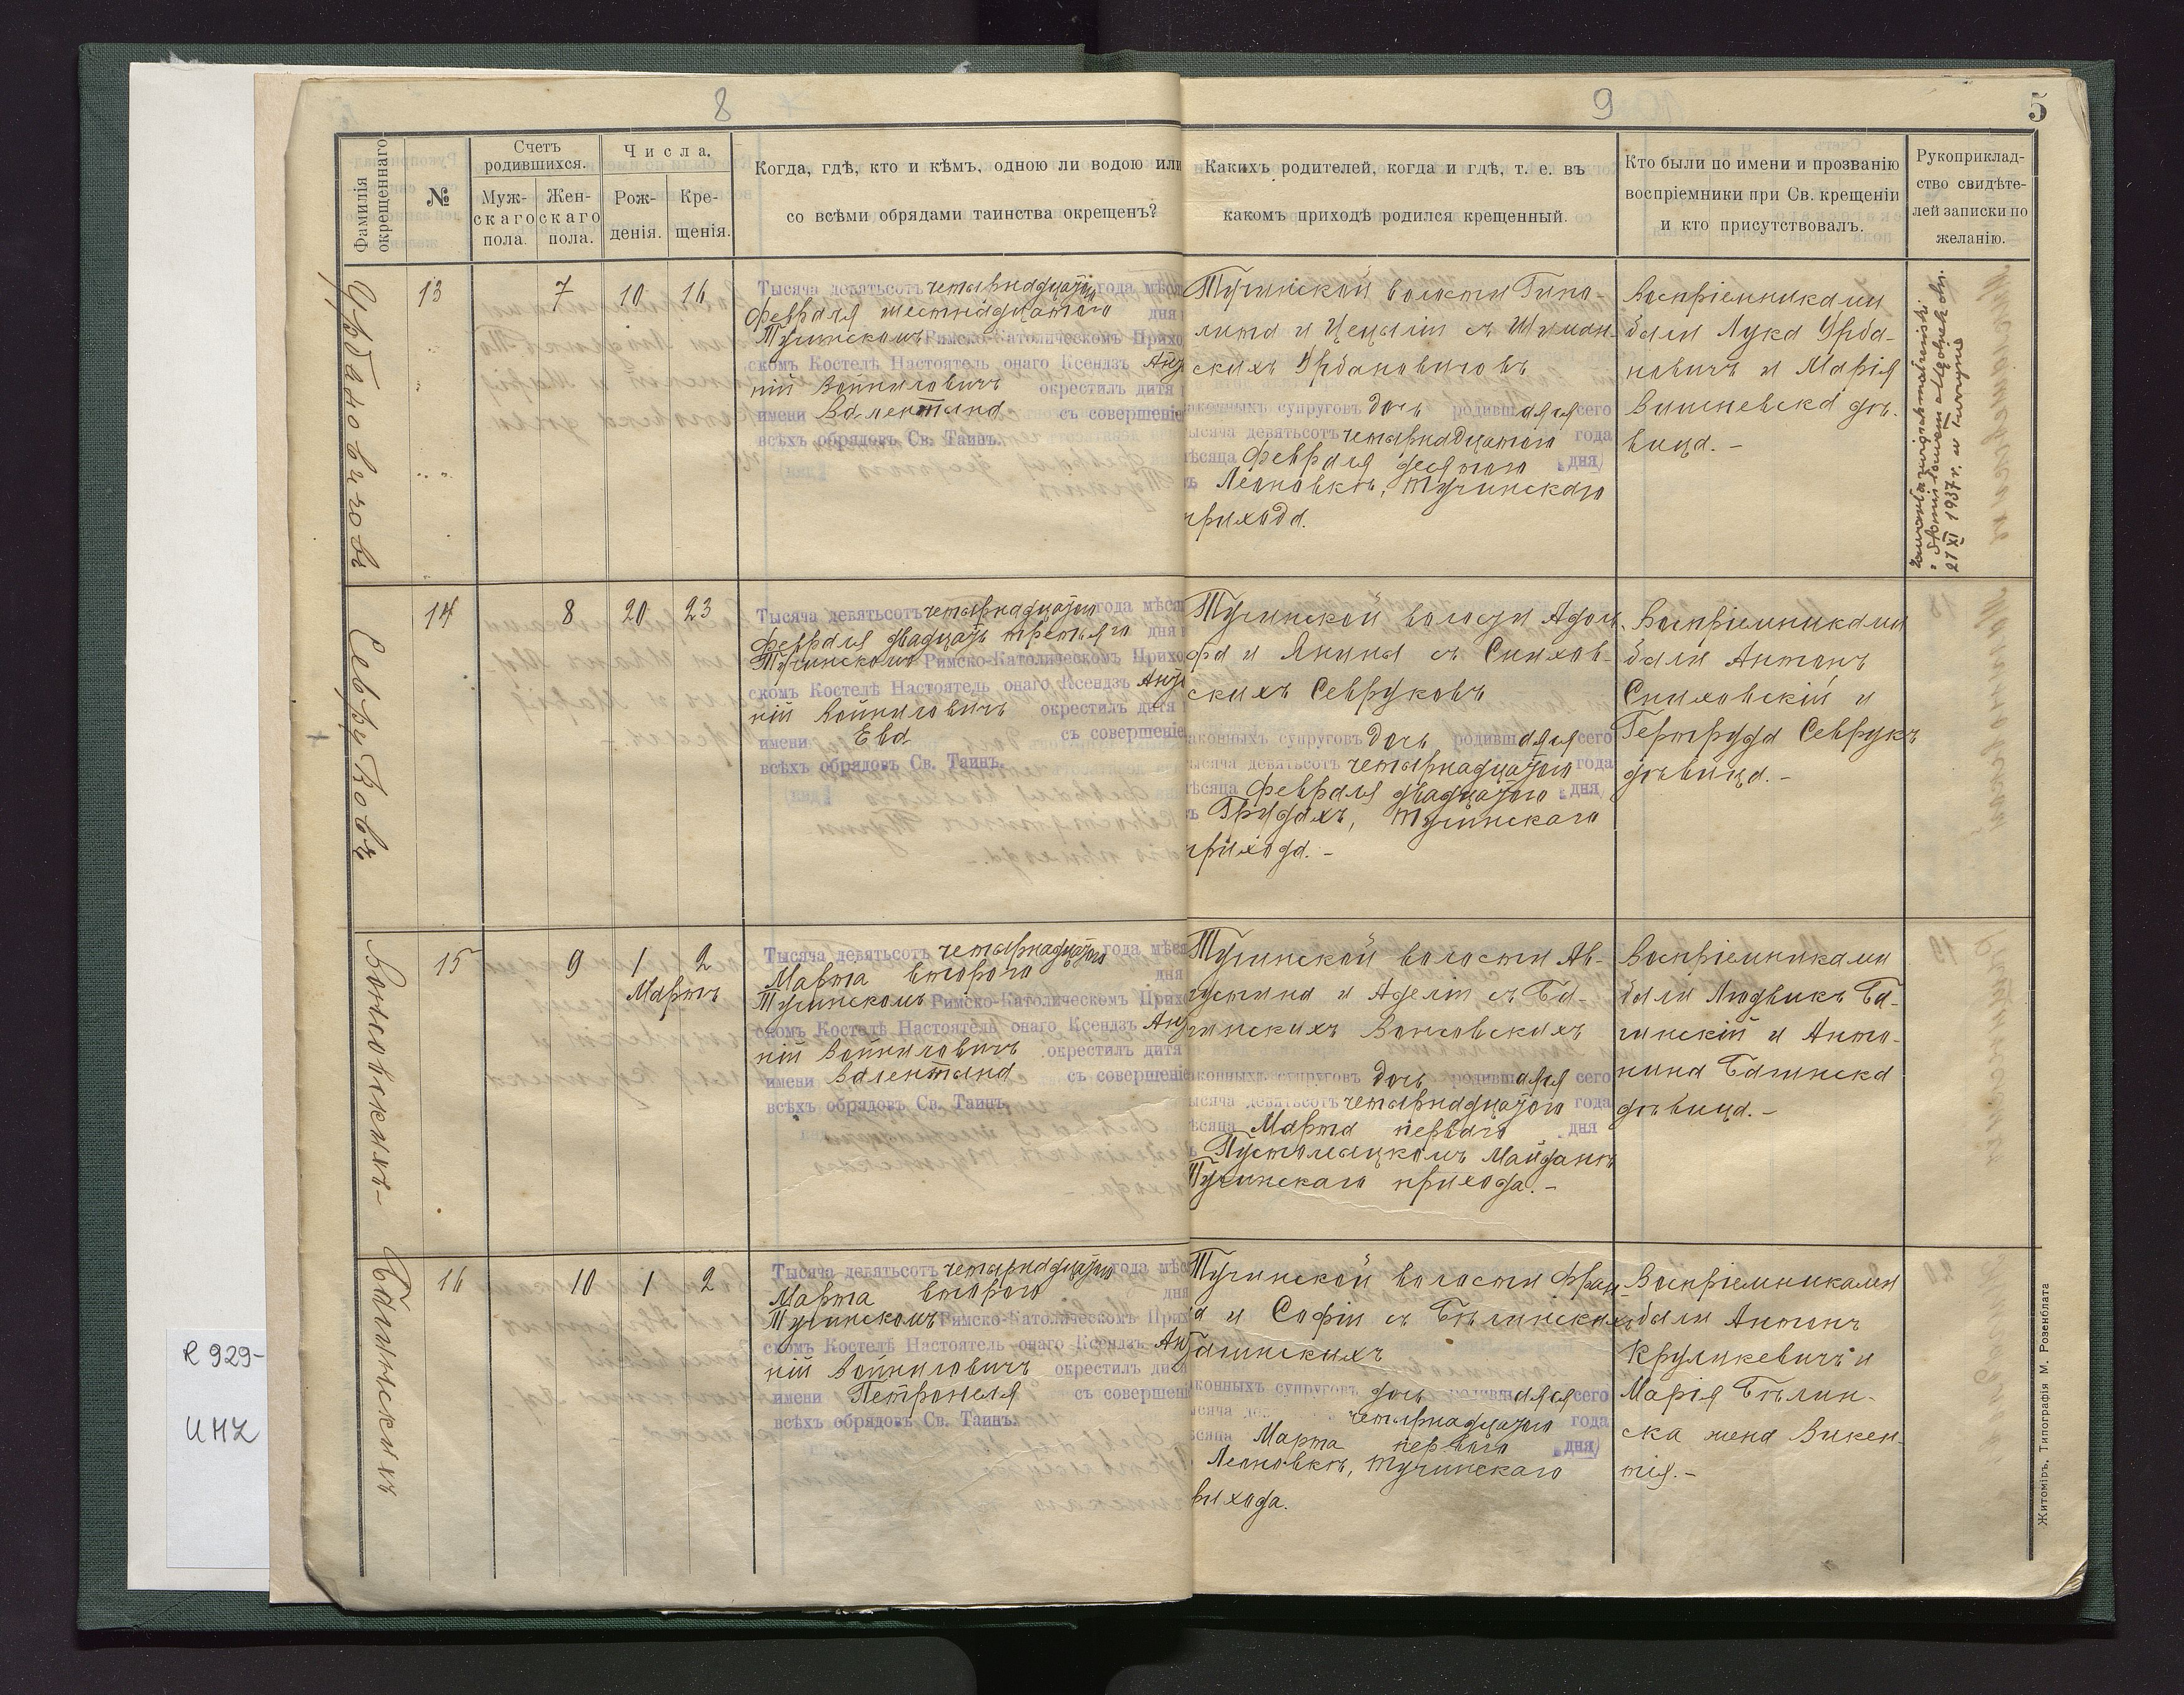 8
9
5
Фамилія окрещеннаго
№
Счетъ родившихся.
Муж-
скаго
пола.
Жен-
скаго
пола.
Числа.
Рож-
денія.
Кре-
щенія.
Когда, гдѣ, кто и кѣмъ, одною ли водою или
со всѣми обрядами таинства окрещенъ?
Какихъ родителей, когда и гдѣ, т. е. въ
какомъ приходѣ родился крещенный.
Кто были по имени и прозванію
воспріемники при Св. крещеніи
и кто присутствовалъ.
Рукоприклад-
ство свидѣте-
лей записки по
желанію.
Урбановичовъ
13
7
10
16
Тысяча девятьсотъ четырнадцатаго года мѣся
Февраля шестнадцатаго дня
Тучинскомъ Римско-Католическомъ Прихо
скомъ Костелѣ Настоятель онаго Ксендзъ Анто
ній Войниловичъ окрестилъ дитя
имени Валентина съ совершеніе
всѣхъ обрядовъ Св. Таинъ.
Тучинской волости Гипо-
лита и Цециліи съ Шиман-
скихъ Урбановичовъ
аконныхъ супруговъ дочь родившаяся сего
ысяча девятьсотъ четырнадцатаго года
ѣсяца Февраля десятого дня
ъ Леоновкѣ, Тучинскаго
прихода.
Воспріемниками
были Лука Урба-
новичъ и Марія
Вишневска дѣ-
вица. -
21 XI 1937 r. w
Севруковъ
14
8
20
23
Тысяча девятьсотъ четырнадцатаго года мѣся
Февраля двадцать третьяго дня
Тучинскомъ Римско-Католическомъ Прихо
скомъ Костелѣ Настоятель онаго Ксендзъ Анто
ній Войниловичъ окрестилъ дитя
имени Ева съ совершеніе
всѣхъ обрядовъ Св. Таинъ.
Тучинской волости Адоль-
фа и Янины съ Снихов-
скихъ Севруковъ
аконныхъ супруговъ дочь родившаяся сего
ысяча девятьсотъ четырнадцатаго года
ѣсяца Февраля двадцатаго дня
ъ Грудахъ, Тучинскаго
прихода. -
Воспріемниками
были Антонъ
Сниховскій и
Гертруда Севрукъ
дѣвица. -
Вонсовскихъ-
15
9
1
2
Мартъ
Тысяча девятьсотъ четырнадцатаго года мѣся
Марта второго дня
Тучинскомъ Римско-Католическомъ Прихо
скомъ Костелѣ Настоятель онаго Ксендзъ Анто
ній Войниловичъ окрестилъ дитя
имени Валентина съ совершеніе
всѣхъ обрядовъ Св. Таинъ.
Тучинской волости Ав-
густина и Аделіи съ Ба-
гинскихъ Вонсовскихъ
аконныхъ супруговъ дочь родившаяся сего
ысяча девятьсотъ четырнадцатаго года
ѣсяца Марта перваго дня
Пустомыцкомъ Майданѣ
Тучинскаго прихода. -
Воспріемниками
были Людвикъ Ба-
гинскій и Анто-
нина Багинска
дѣвица. -
Багинскихъ
16
10
1
2
Тысяча девятьсотъ четырнадцатаго года мѣс
Марта второго дня
Тучинскомъ Римско-Католическомъ Прих
скомъ Костелѣ Настоятель онаго Ксендзъ Ант
ній Войниловичъ окрестилъ дитя
имени Петронеля съ совершені
всѣхъ обрядовъ Св. Таинъ.
Тучинской волости Фран-
а и Софіи съ Бѣлинскихъ
Багинскихъ
конныхъ супруговъ дочь родившаяся сего
ысяча де четырнадцатаго года
ѣсяца Марта перваго дня
Леоновкѣ, Тучинскаго
рихода.
Воспріемниками
были Антонъ
Круликевичъ и
Марія Бѣлин-
ска жена Викен-
тія. -
Житоміръ, Типографія М. Розенблата
R 929-
UMZ